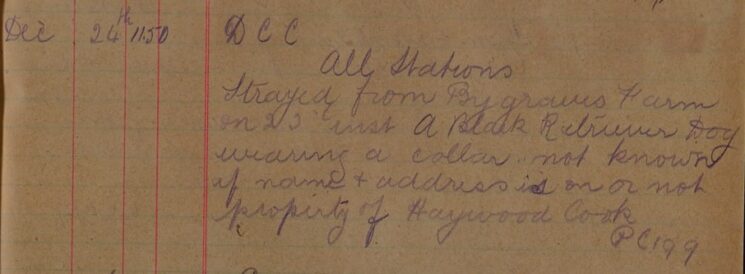 Dec 24th 11.50 D C C
All Stations
Strayed from Bygraves Farm
on 23 inst A Black Retriever Dog
wearing a collar. not known
if name + address is on or not
property of Haywood Cook
PC199